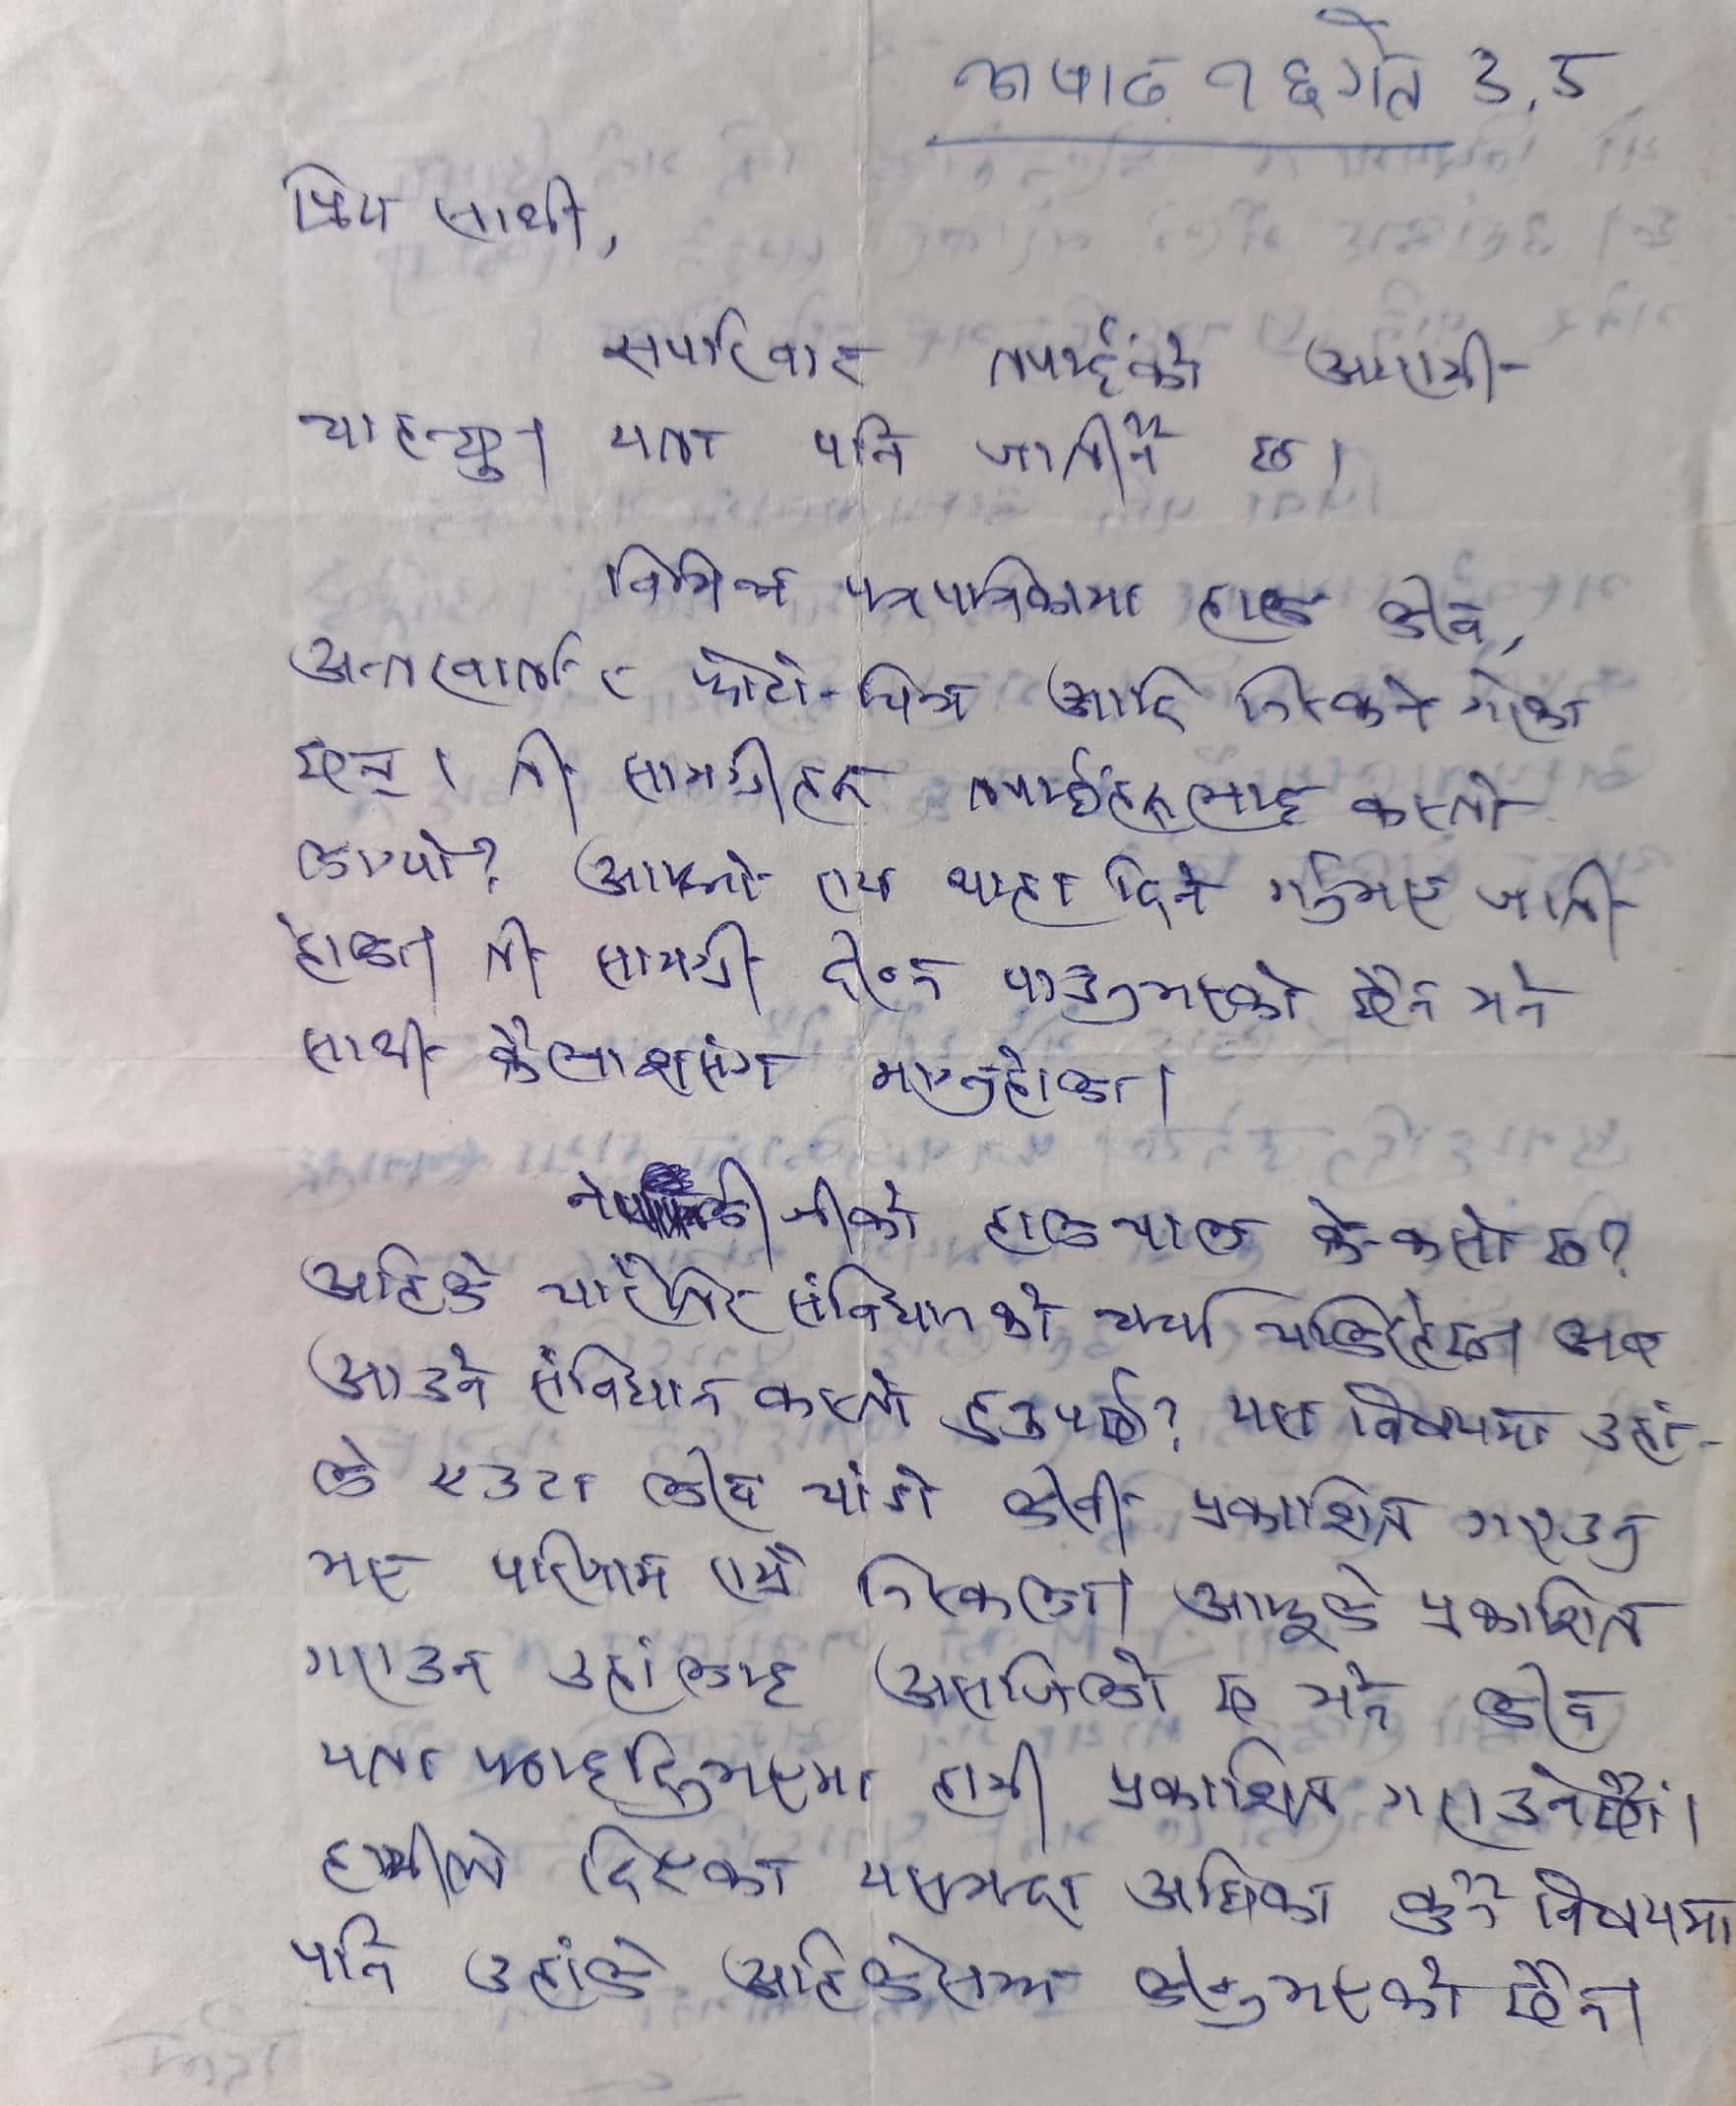 आषाढ १६ गते
प्रिय साथी,
सपरिवार तपाईंको आरामी
चाहन्छु। यता पनि जाती नै छ।
विभिन्न पत्रपत्रिकामा हाम्रा लेख,
अन्तरवार्ता र फोटो-चित्र आदि निस्कने गरेका
छन्। ती सामग्रीहरू तपाईंहरूलाई कस्तो
लाग्यो? आफ्नो राय थाहा दिने गर्नुभए जाती
होला। ती सामग्री देख्न पाउनुभएको छैन भने
साथी कैलाशसंग माग्नुहोला।
जीको हालचाल के-कसो छ?
अहिले चारैतिर संविधानको चर्चा चलिरहेछ। अब
आउने संविधान कस्तो हुनुपर्छ? यस विषयमा उहां-
ले एउटा लेख चांडो लेखी प्रकाशित गराउनु
भए परिणाम राम्रै निस्कला। आफूले प्रकाशित
गराउन उहांलाई असजिलो छ भने लेख
यता पठाइदिनुभएमा हामी प्रकाशित गराउनेछौं।
हामीले दिएका यसभन्दा अघिका कुनै विषयमा
पनि उहांले अहिलेसम्म लेख्नुभएको छैन।